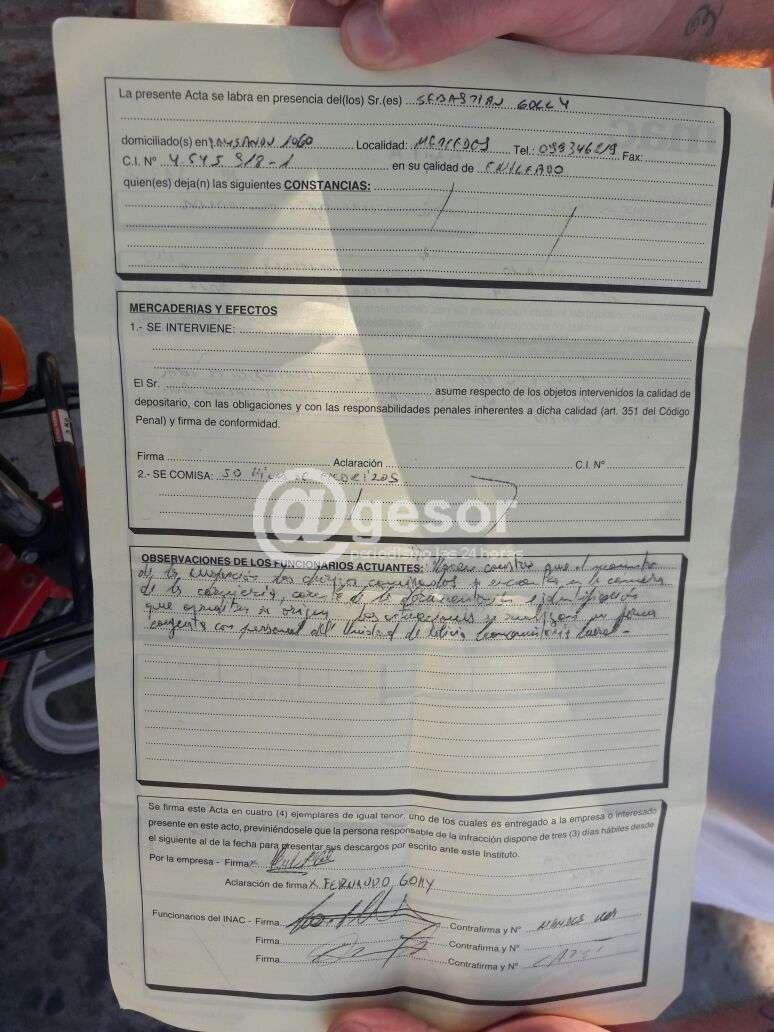 La presente Acta se labra en presencia del(los) Sr.(es) SEBASTIAN GOLLY
domiciliado(s) en PAYSANDU 1060 Localidad: MERCEDES Tel.: 09934629 Fax:
C.I. Nº 4545 918-1 en su calidad de EMPLEADO
quien(es) deja(n) las siguientes CONSTANCIAS:
MERCADERIAS Y EFECTOS
1.- SE INTERVIENE:
El Sr. asume respecto de los objetos intervenidos la calidad de
depositario, con las obligaciones y con las responsabilidades penales inherentes a dicha calidad (art. 351 del Código
Penal) y firma de conformidad.
Firma Aclaración C.I. Nº
2.- SE COMISA: 50 CHORIZOS
@gesor
periodismo las 24 horas
OBSERVACIONES DE LOS FUNCIONARIOS ACTUANTES: que el momento
de la inspección los chorizos comisados se encuentran en la cámara
de la carnicería, de la documentación e identificación
que acredite su origen. Las actuaciones se realizan en forma
conjunta con personal del
Se firma este Acta en cuatro (4) ejemplares de igual tenor, uno de los cuales es entregado a la empresa o interesado
presente en este acto, previniéndosele que la persona responsable de la infracción dispone de tres (3) días hábiles desde
el siguiente al de la fecha para presentar sus descargos por escrito ante este Instituto.
Por la empresa - Firma x
Aclaración de firma x FERNANDO GOLLY
Funcionarios del INAC - Firma Contrafirma y Nº
Firma Contrafirma y Nº
Firma Contrafirma y Nº